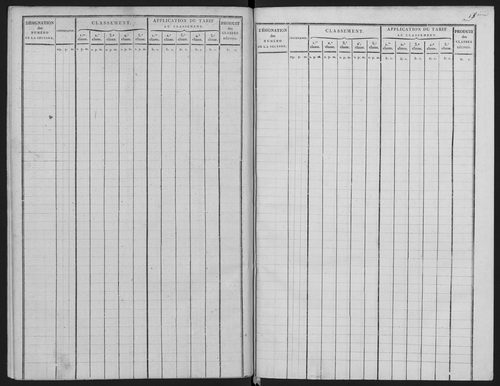 DÉSIGNATION
des
NUMÉRO
DE LA SECTION.
CONTENANCE.
CLASSEMENT.
1.re classe. 2.e classe. 3.e classe. 4.e classe. 5.e classe.
APPLICATION DU TARIF
AU CLASSEMENT.
1.re classe. 2.e classe. 3.e classe. 4.e classe. 5.e classe.
PRODUIT
des
CLASSES
RÉUNIES.
DÉSIGNATION
des
NUMÉRO
DE LA SECTION.
CONTENANCE.
CLASSEMENT.
1.re classe. 2.e classe. 3.e classe. 4.e classe. 5.e classe.
APPLICATION DU TARIF
AU CLASSEMENT.
1.re classe. 2.e classe. 3.e classe. 4.e classe. 5.e classe.
PRODUIT
des
CLASSES
RÉUNIES.